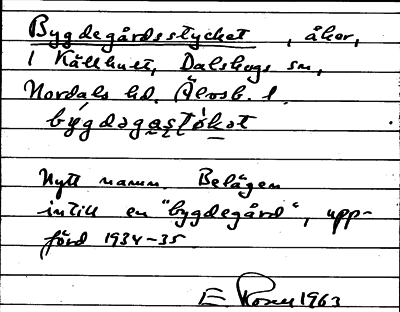 Bygdegårdsstycket, åker,
i Källhult, Dalskogs sn,
Nordals hd. Älvsb. l.
býgdəgaṣṭỏkət
Nytt namn. Belägen
intill en "bygdegård", upp-
förd 1934-35.
E 1963